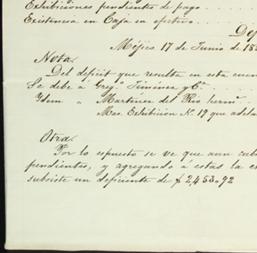 Exhibiciones pendientes de pago
Existencia en Caja en efectivo
Méjico 17 de Junio de 18
Nota
Del déficit que resulta en esta cuen
Se debe á Greg.º Jiménez y C.ª
Idem a Martinez del Rio herm.ˢ
Mas Exhibicion N. 17 que ade
Otra
Por lo espuesto se ve que aun cub
pendientes, y agregando á estas la ex
subsiste un deficiente de $ 2,453.,92